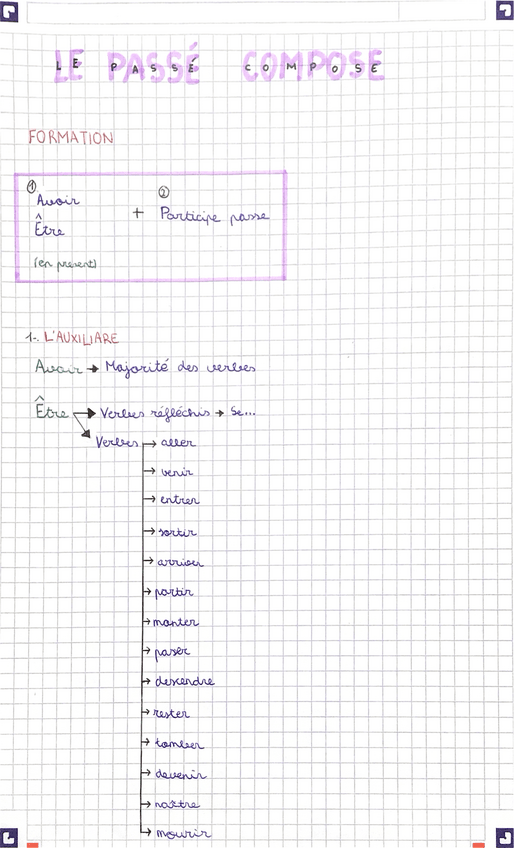 LE PASSÉ COMPOSE
FORMATION
① Avoir
Être
(en present)
+
② Participe passe
1-. L'AUXILIARE
Avoir → Majorité des verbes
Être → Verbes réfléchis → Se...
Verbes → aller
→ venir
→ entrer
→ sortir
→ arriver
→ partir
→ monter
→ paser
→ descendre
→ rester
→ tomber
→ devenir
→ naître
→ mourir